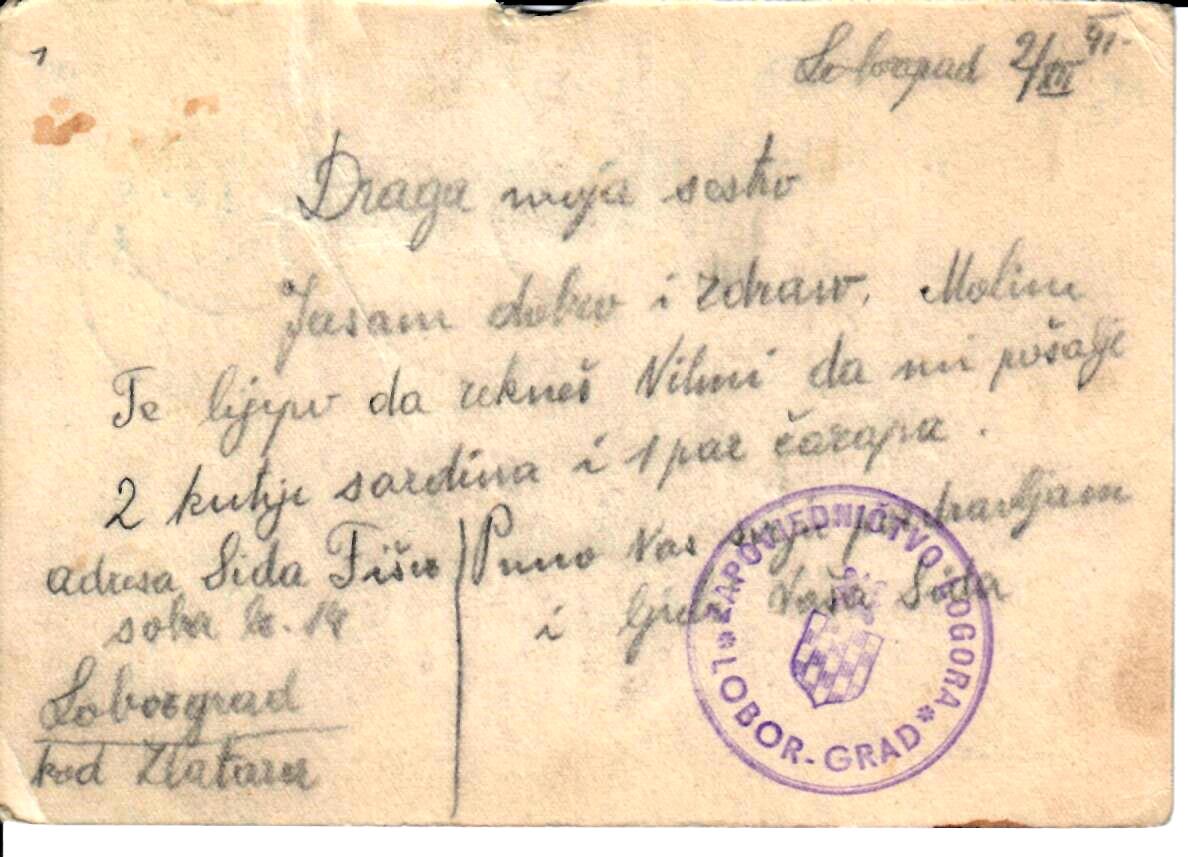 1
Loborgrad 2/XII 41.
Draga moja sestro
Jasam dobro i zdravo. Molim
Te lijepo da rekneš Vilmi da mi pošalje
2 kutije sardina i 1 par čarapa.
Puno Vas sviju pozdravljam
i ljubi Vaša Sida
adresa Sida Fišer
soba br. 14
Loborgrad
kod Zlatara
ZAPOVJEDNIČTVO LOGORA
* LOBOR-GRAD *